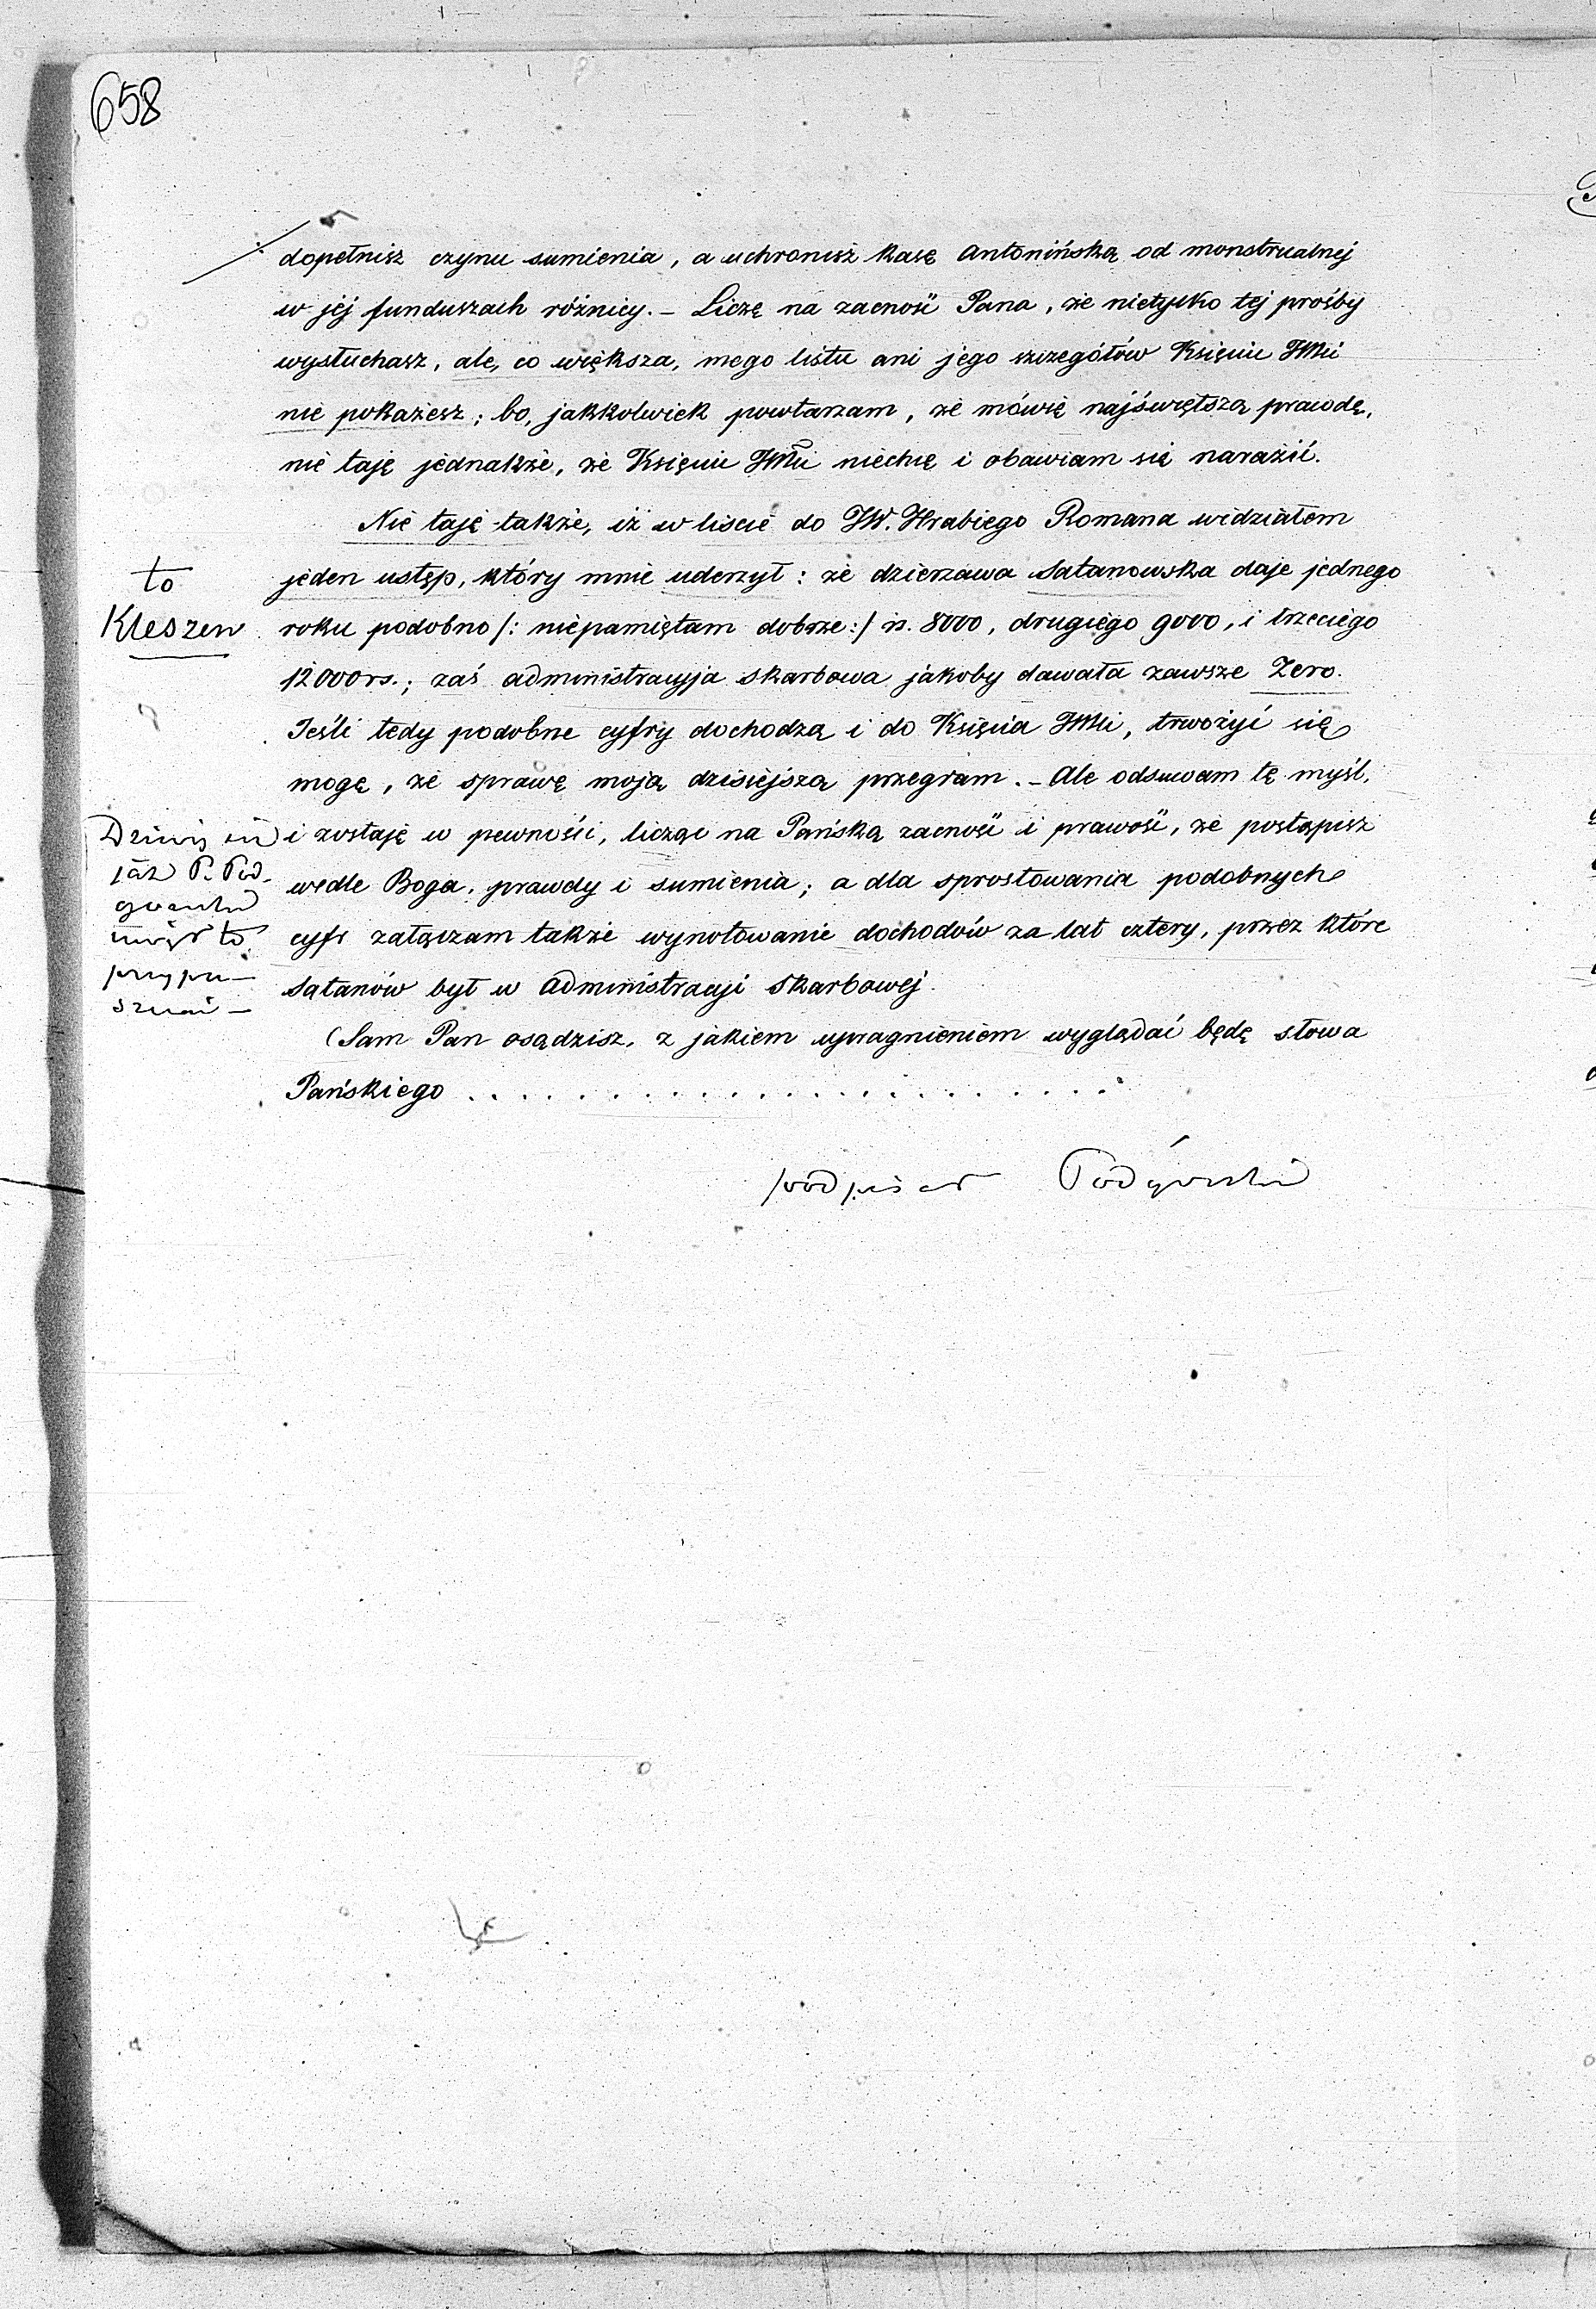 658
dopełnisz czynu sumienia, a uchronisz kasę Antonińską od monstrualnej
w jej funduszach różnicy. – Liczę na zacność Pana, że nietylko tej prośby
wysłuchasz, ale, co większa, mego listu ani jego szczegółów Księciu JMci
nie pokażesz; bo, jakkolwiek powtarzam, że mówię najświętszą prawdę,
nie taję jednakże, że Księciu JMci niechcę i obawiam się narazić.
Nie taję także, iż w liście do JW. Hrabiego Romana widziałem
jeden ustęp, który mnie uderzył: że dzierżawa Satanowska daje jednego
roku podobno /: niepamiętam dobrze :/ rs. 8000, drugiego 9000, i trzeciego
12000 rs.; zaś administracyja skarbowa jakoby dawała zawsze Zero.
Jeśli tedy podobne cyfry dochodzą i do Księcia JMci, trwożyć się
mogę, że sprawę moją dzisiejszą przegram. – Ale odsuwam tę myśl,
i zostaję w pewności, licząc na Pańską zacność i prawość, że postąpisz
wedle Boga, prawdy i sumienia; a dla sprostowania podobnych
cyfr załączam także wynotowanie dochodów za lat cztery, przez które
Satanów był w Administracji Skarbowej.
Sam Pan osądzisz, z jakiem upragnieniem wyglądać będę słowa
Pańskiego . . . . . . . . . . . . . . . . . . . . . . .
podpisał Podgórski
to
Kleszew
Dziwię się
jak P. Pod-
górski
mógł to
przypu-
szczać –